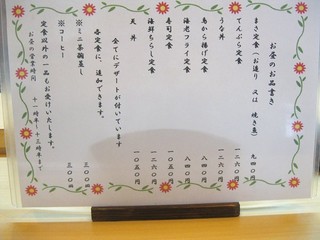 お昼のお品書き
まさ定食(お造り 又は 焼き魚) 九四〇円
てんぷら定食 一二六〇円
うな丼 一二六〇円
鳥から揚げ定食 八四〇円
海老フライ定食 八四〇円
寿司定食 一〇五〇円
海鮮ちらし定食 一二六〇円
天丼 一〇五〇円
全てにデザートが付いています
各定食に、追加できます。
※ミニ茶碗蒸し 三〇〇円
※コーヒー 三〇〇円
定食以外の一品もお受けいたします。
お昼の営業時間 十一時半~十三時半まで